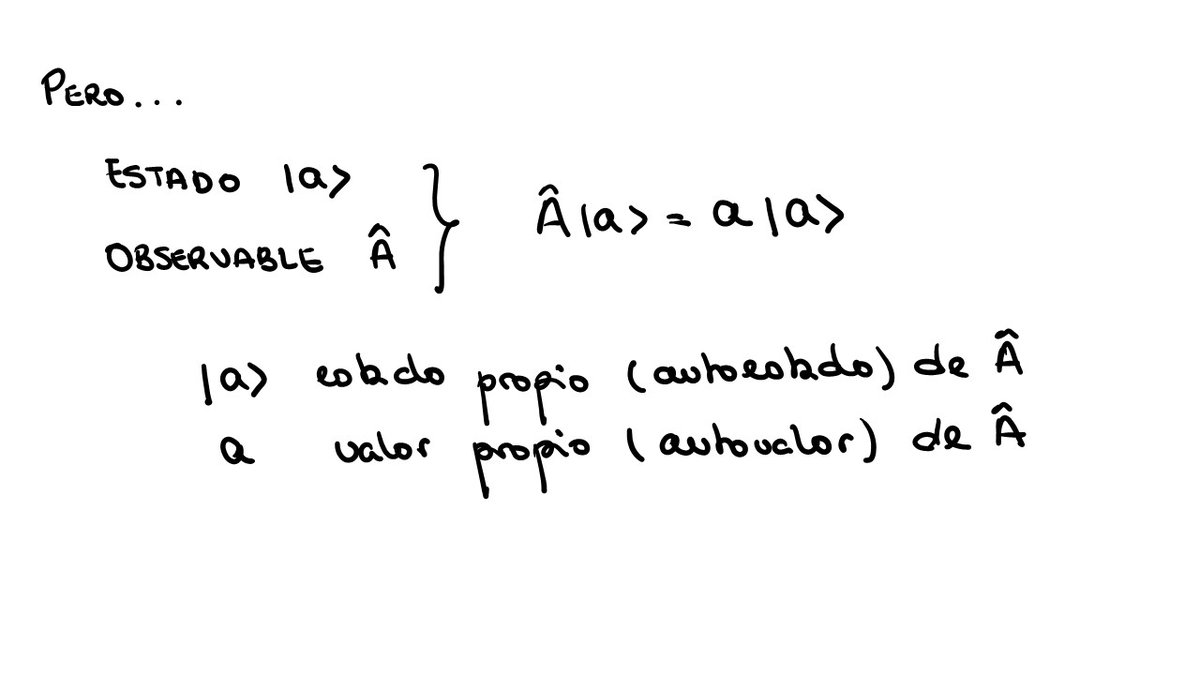 PERO...
ESTADO |a>
OBSERVABLE Â
Â|a> = a|a>
|a> estado propio (autoestado) de Â
a valor propio (autovalor) de Â